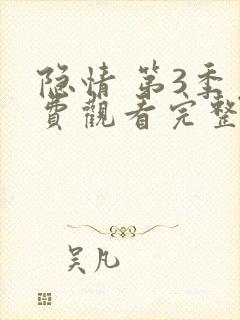 隐情 第3季
費觀看完整
吴凡